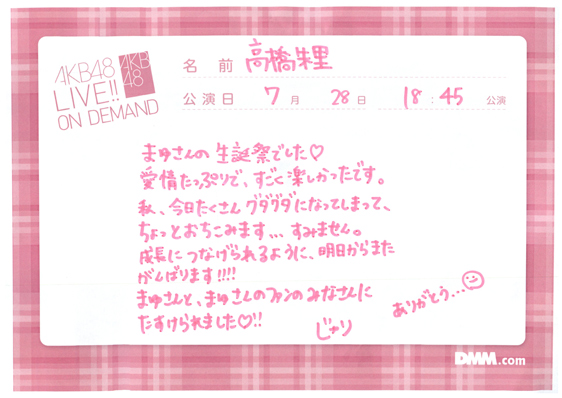 AKB48
LIVE!!
ON DEMAND
AKB
48
名 前 高橋朱里
公演日 7月 28日 18:45 公演
まゆさんの生誕祭でした♡
愛情たっぷりで、すごく楽しかったです。
私、今日たくさんグダグダになってしまって、
ちょっとおちこみます、、、すみません。
成長につなげられるように、明日からまた
がんばります!!!!
まゆさんと、まゆさんのファンのみなさんに
たすけられました♡!!
ありがとう...
じゅり
DMM.com